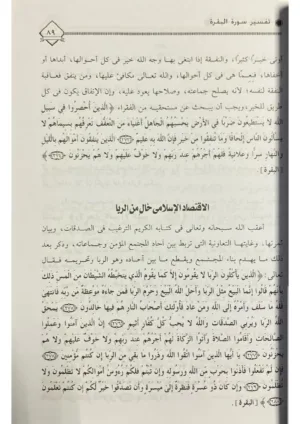 تفسير سورة البقرة
٨٩
أوتى خيراً كثيراً، والنفقة إذا ابتغى بها وجه الله خير فى كل أحوالها، أبداها أو
أخفاها، فنعما هى فى كل أحوالها، والله تعالى مكافئ عليها، ومن ينفق فعاقبة
النفقة لنفسه؛ لأنه يصلح جماعته، وصلاحها يعود عليه، وإن الإنفاق يكون فى كل
طريق للخير، ويجب أن يبحث عن مستحقيه من الفقراء، ﴿الذين أحصروا في سبيل
الله لا يستطيعون ضربا في الأرض يحسبهم الجاهل أغنياء من التعفف تعرفهم بسيماهم لا
يسألون الناس إلحافا وما تنفقوا من خير فإن الله به عليم ﴿٢٧٣﴾ الذين ينفقون أموالهم بالليل
والنهار سرا وعلانية فلهم أجرهم عند ربهم ولا خوف عليهم ولا هم يحزنون ﴿٢٧٤﴾
[البقرة].
الاقتصاد الإسلامى خال من الربا
أعقب الله سبحانه وتعالى فى كتابه الكريم الترغيب فى الصدقات، وبيان
ثمرتها، وغايتها التعاونية التى تربط بين آحاد المجتمع المؤمن وجماعاته، وذكر بعد
ذلك ما يهدم بناء المجتمع ويقطع ما بين آحاده، وهو الربا وتحريمه فقال
تعالى: ﴿الذين يأكلون الربا لا يقومون إلا كما يقوم الذي يتخبطه الشيطان من المس ذلك
بأنهم قالوا إنما البيع مثل الربا وأحل الله البيع وحرم الربا فمن جاءه موعظة من ربه فانتهى
فله ما سلف وأمره إلى الله ومن عاد فأولئك أصحاب النار هم فيها خالدون ﴿٢٧٥﴾ يمحق
الله الربا ويربي الصدقات والله لا يحب كل كفار أثيم ﴿٢٧٦﴾ إن الذين آمنوا وعملوا
الصالحات وأقاموا الصلاة وآتوا الزكاة لهم أجرهم عند ربهم ولا خوف عليهم ولا هم
يحزنون ﴿٢٧٧﴾ يا أيها الذين آمنوا اتقوا الله وذروا ما بقي من الربا إن كنتم مؤمنين ﴿٢٧٨﴾
فإن لم تفعلوا فأذنوا بحرب من الله ورسوله وإن تبتم فلكم رءوس أموالكم لا تظلمون ولا
تظلمون ﴿٢٧٩﴾ وإن كان ذو عسرة فنظرة إلى ميسرة وأن تصدقوا خير لكم إن كنتم تعلمون
﴿٢٨٠﴾ [البقرة].